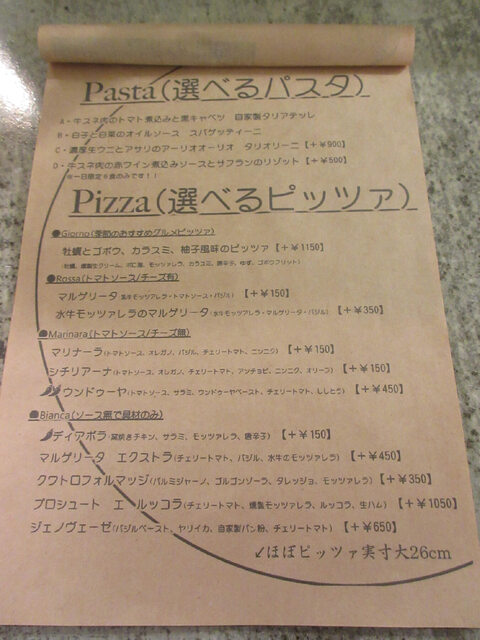 Pasta(選べるパスタ)
A・牛スネ肉のトマト煮込みと黒キャベツ 自家製タリアテッレ
B・白子と白菜のオイルソース スパゲッティーニ
C・濃厚生ウニとアサリのアーリオオーリオ タリオリーニ【+¥900】
D・牛スネ肉の赤ワイン煮込みソースとサフランのリゾット【+¥500】
※一日限定6食のみです！！
Pizza(選べるピッツァ)
●Giorno(季節のおすすめグルメピッツァ)
牡蠣とゴボウ、カラスミ、柚子風味のピッツァ【+¥1150】
●Rossa(トマトソース/チーズ有)
マルゲリータ 【+¥150】
水牛モッツァレラのマルゲリータ(水牛モッツァレラ・マルゲリータ・バジル)【+¥350】
●Marinara(トマトソース/チーズ無)
マリナーラ(トマトソース、オレガノ、バジル、チェリートマト、ニンニク)【+¥150】
シチリアーナ(トマトソース、オレガノ、チェリートマト、アンチョビ、ニンニク、オリーブ)【+¥150】
ウンドゥーヤ(トマトソース、サラミ、ウンドゥーヤペースト、チェリートマト、ししとう)【+¥450】
●Bianca(ソース無で具材のみ)
ディアボラ(窯焼きチキン、サラミ、モッツァレラ、唐辛子)【+¥150】
マルゲリータ エクストラ(チェリートマト、バジル、水牛のモッツァレラ)【+¥450】
クワトロフォルマッジ(パルミジャーノ、ゴルゴンゾーラ、タレッジョ、モッツァレラ)【+¥350】
プロシュート エ ルッコラ(チェリートマト、燻製モッツァレラ、ルッコラ、生ハム)【+¥1050】
ジェノヴェーゼ(バジルペースト、ヤリイカ、自家製パン粉、チェリートマト)【+¥650】
↙ほぼピッツァ実寸大26cm